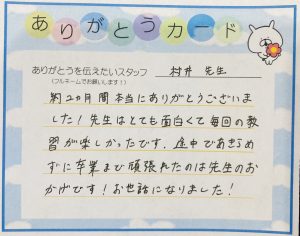 ありがとうカード
ありがとうを伝えたいスタッフ 村井 先生
(フルネームでお願いします!)
約2ヵ月間本当にありがとうございま
した!先生はとても面白くて毎回の教
習が楽しかったです。途中であきらめ
ずに卒業まで頑張れたのは先生のお
かげです!お世話になりました!